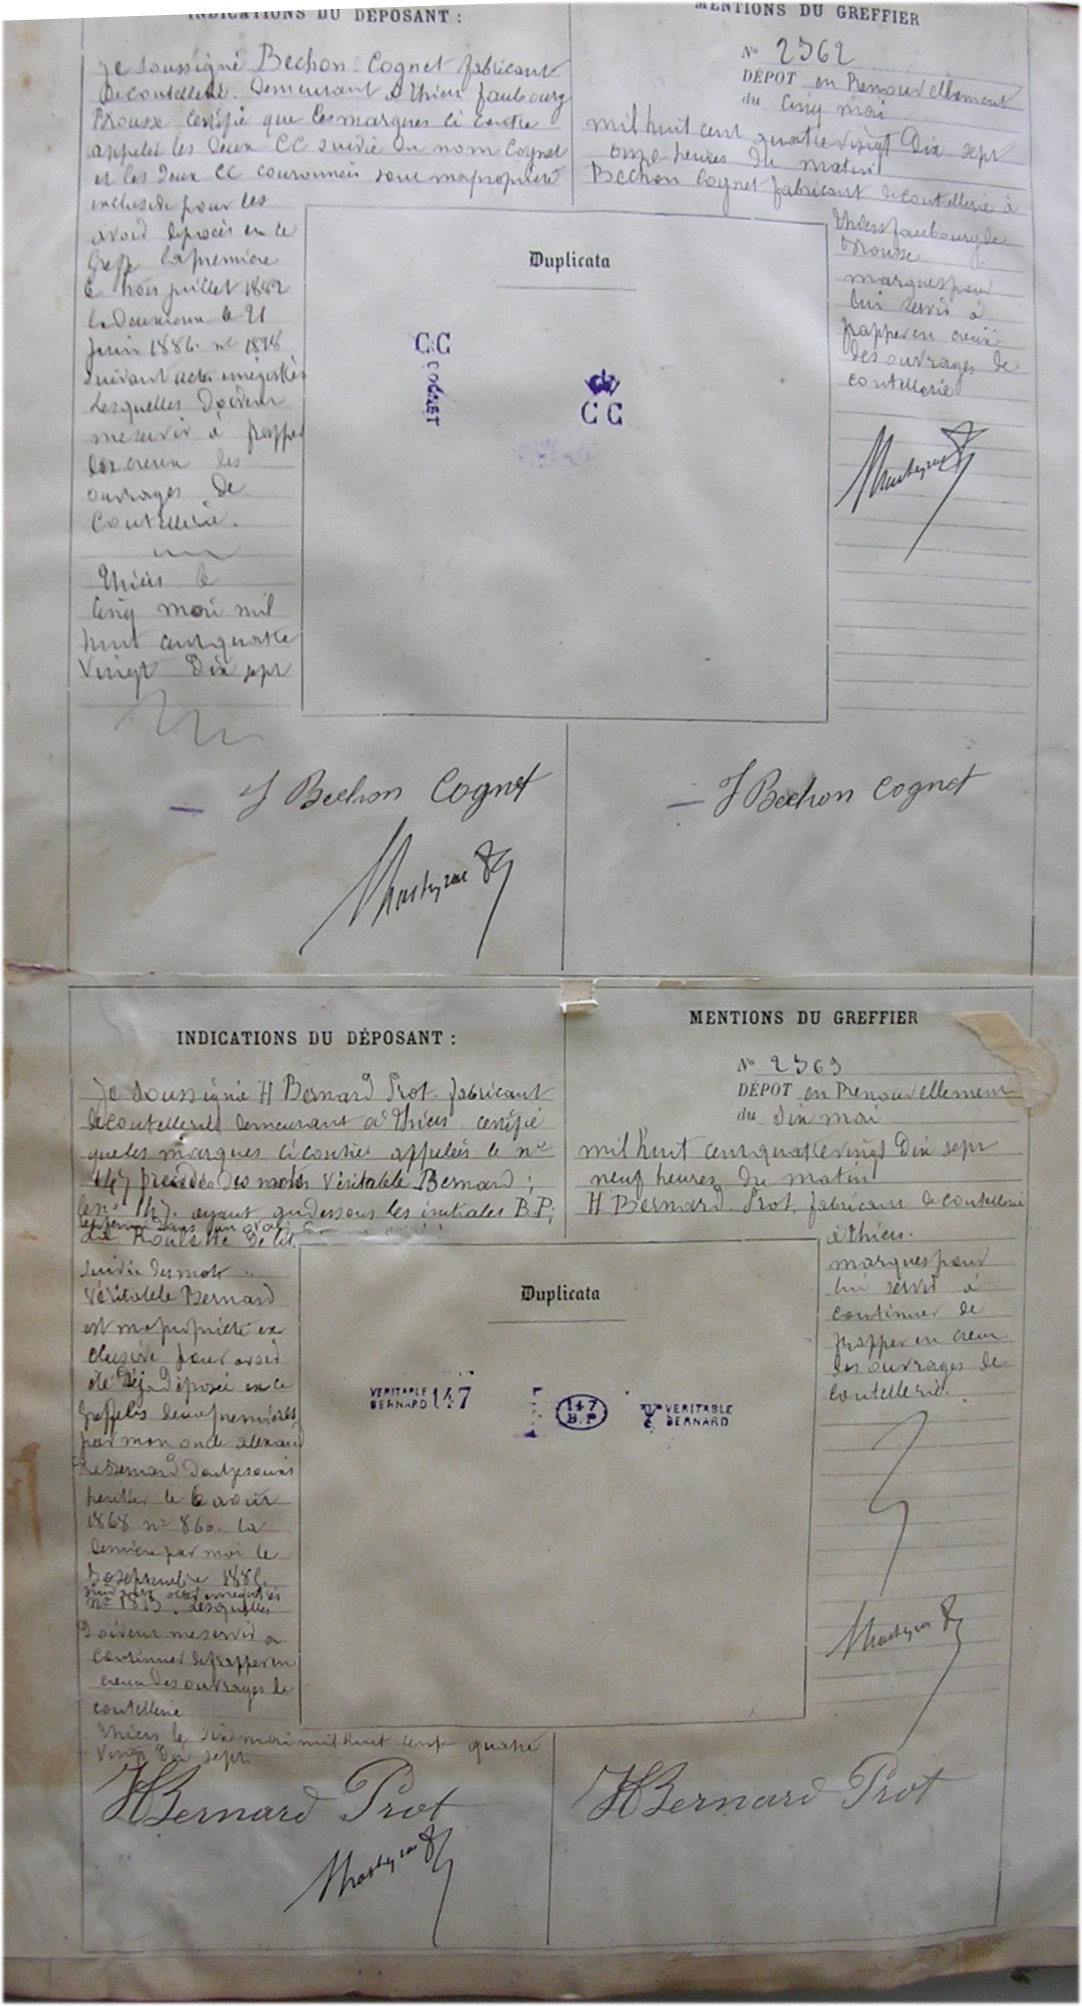 INDICATIONS DU DÉPOSANT :
Je soussigné Bechon-Cognet fabricant
de coutellerie demeurant à Thiers faubourg
Brousse certifie que les marques ci contre
appelées les deux CC suivie du nom Cognet
et les deux CC couronnées sont ma propriété
exclusive pour les
avoir déposés en ce
Greffe la première
le trois juillet 1882
la deuxième le 21
Juin 1886. nº 1818
suivant actes enregistrés
Lesquelles doivent
me servir à frapper
en creux des
ouvrages de
Coutellerie.
Thiers le
cinq mai mil
huit cent quatre
vingt Dix sept
MENTIONS DU GREFFIER
Nº 2362
DÉPOT en Renouvellement
du cinq mai
mil huit cent quatre vingt Dix sept
onze heures du matin
Bechon Cognet fabricant de coutellerie à
Thiers faubourg de
Brousse
marques pour
lui servir à
frapper en creux
des ouvrages de
coutellerie
Duplicata
CC
COGNET
CC
J Bechon Cognet
J Bechon Cognet
INDICATIONS DU DÉPOSANT :
Je soussigné H Bernard Prot. fabricant
de coutellerie demeurant à Thiers certifie
que les marques ci contre appelées le nº
147 précédé des mots Véritable Bernard ;
le nº 147. ayant au dessous les initiales B.P;
renfermé dans un ovale
La Roulette de lit
suivie des mots
Véritable Bernard
est ma propriété ex
clusive pour avoir
été Déjà Déposée en ce
Greffe les deux premières
par mon oncle alexan
dre Bernard dont je suis
héritier le 6 août
1868 nº 860. la
dernière par moi le
septembre 188
suivant actes enregistrés
nº 1813. Lesquelles
Doivent me servir a
continuer de frapper en
creux des ouvrages de
coutellerie
Thiers le Dix mai mil huit cent quatre
vingt Dix sept.
MENTIONS DU GREFFIER
Nº 2363
DÉPOT en Renouvellement
du Dix mai
mil huit cent quatre vingt Dix sept
neuf heures du matin
H Bernard. Prot. fabricant de coutellerie
à Thiers.
marques pour
lui servir à
continuer de
frapper en creux
des ouvrages de
coutellerie.
Duplicata
VERITABLE
BERNARD 147
147
B.P
VERITABLE
BERNARD
HBernard Prot
HBernard Prot